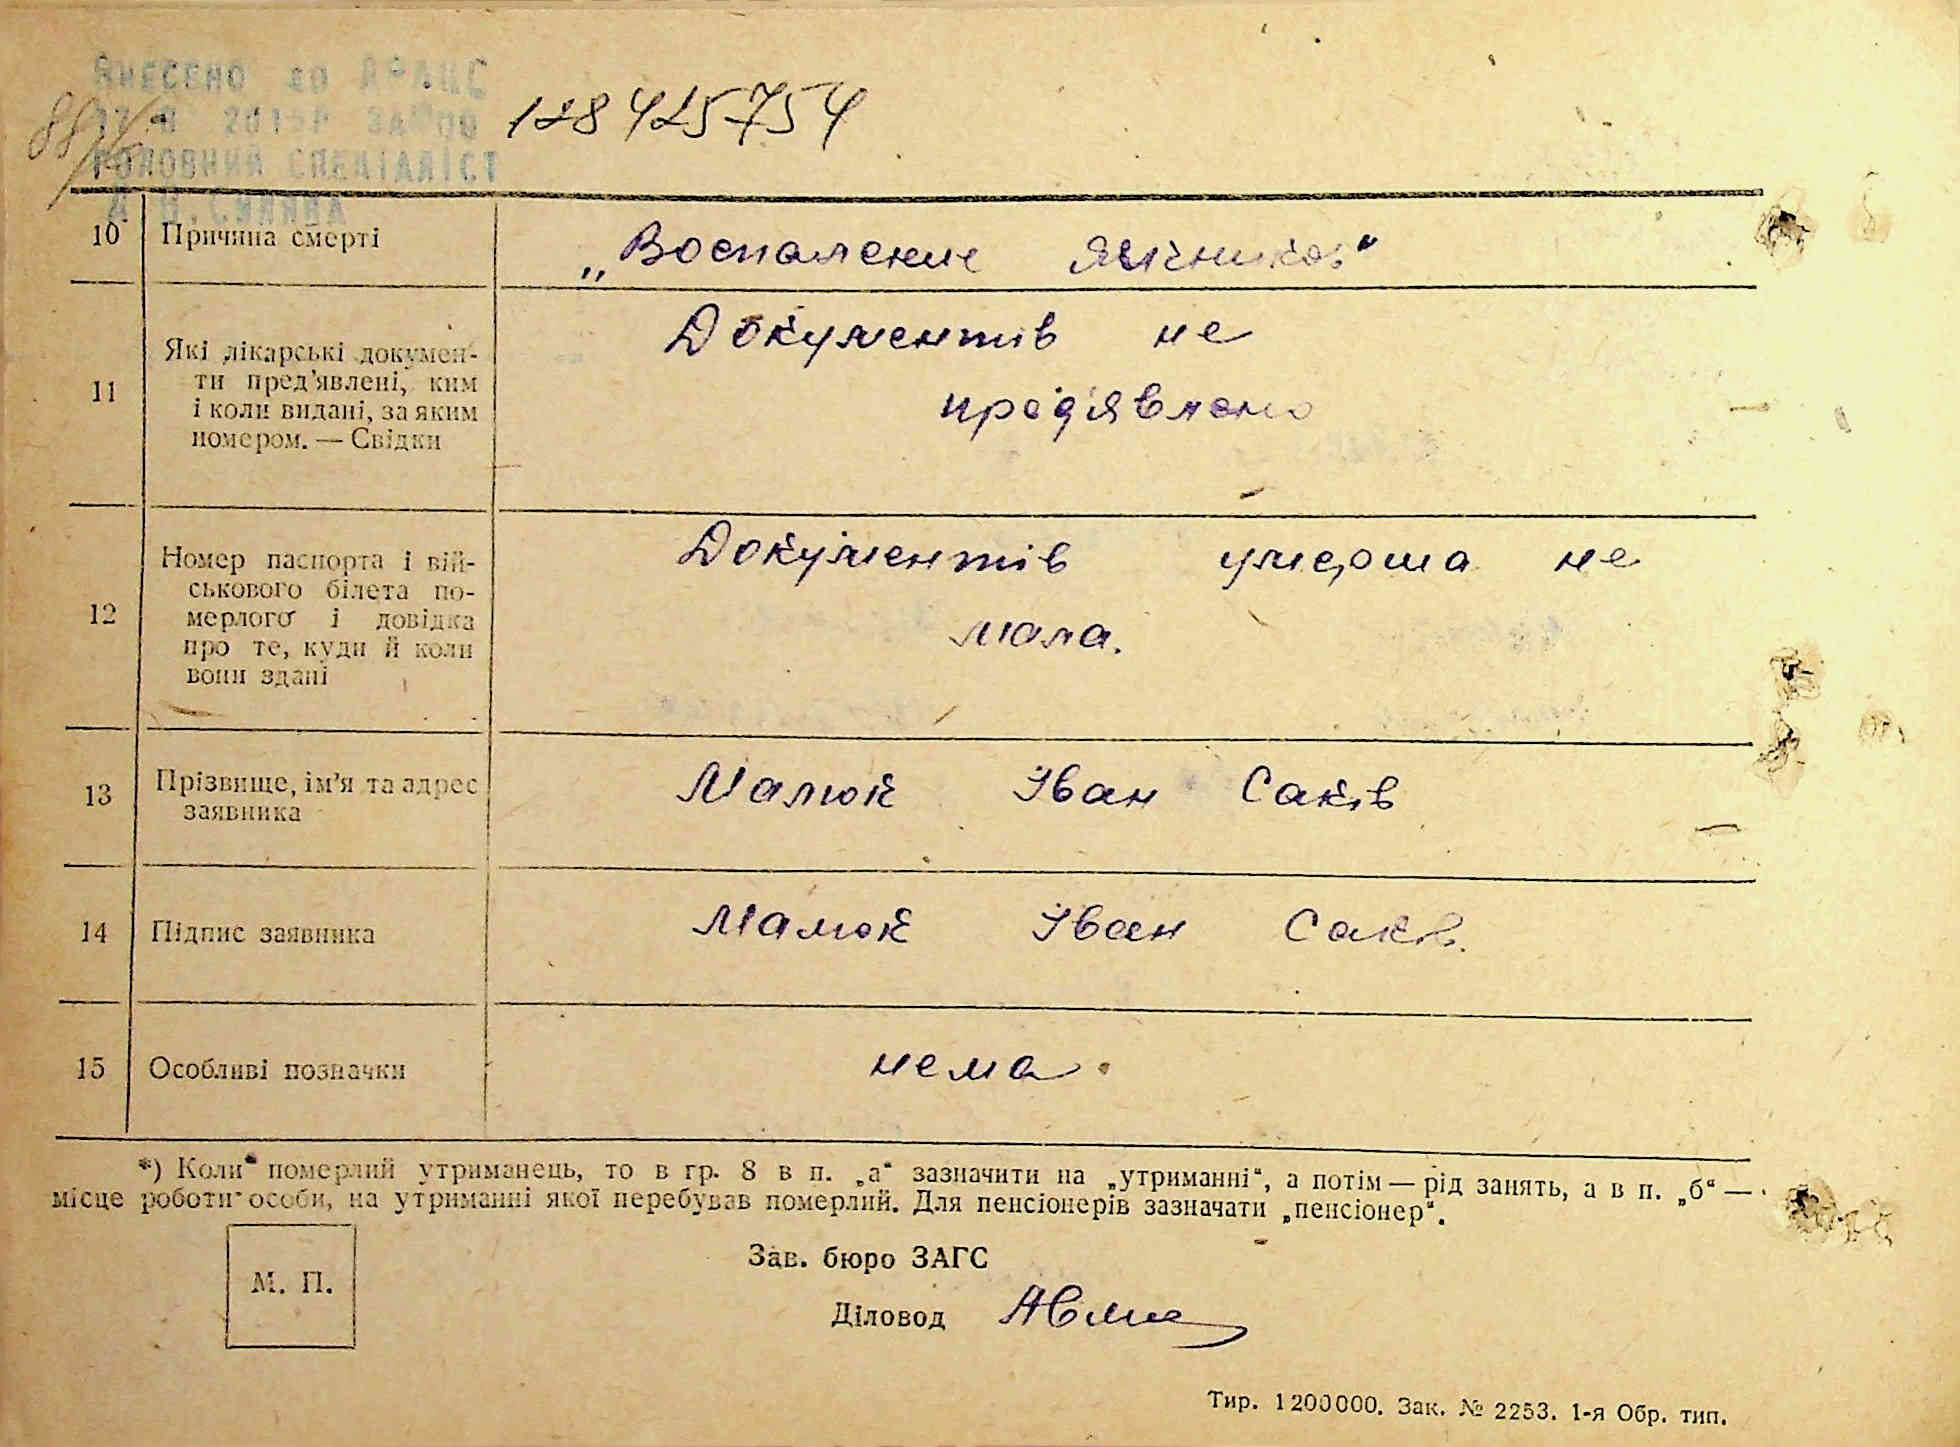 ВНЕСЕНО до ДРАЦС
ГОЛОВНИЙ СПЕЦІАЛІСТ
128425754
10 Причина смерті „Воспаление яичников“
11 Які лікарські докумен-
ти пред’явлені, ким
і коли видані, за яким
номером. — Свідки
Документів не
предявлено
12 Номер паспорта і вій-
ськового білета по-
мерлого і довідка
про те, куди й коли
вони здані
Документів умерша не
мала.
13 Прізвище, ім’я та адрес
заявника
Малюк Іван Саків
14 Підпис заявника Малюк Іван Саків.
15 Особливі позначки нема.
*) Коли померлий утриманець, то в гр. 8 в п. „а“ зазначити на „утриманні“, а потім — рід занять, а в п. „б“ —
місце роботи особи, на утриманні якої перебував померлий. Для пенсіонерів зазначати „пенсіонер“.
М. П.
Зав. бюро ЗАГС
Діловод
Тир. 1200000. Зак. № 2253. 1-я Обр. тип.